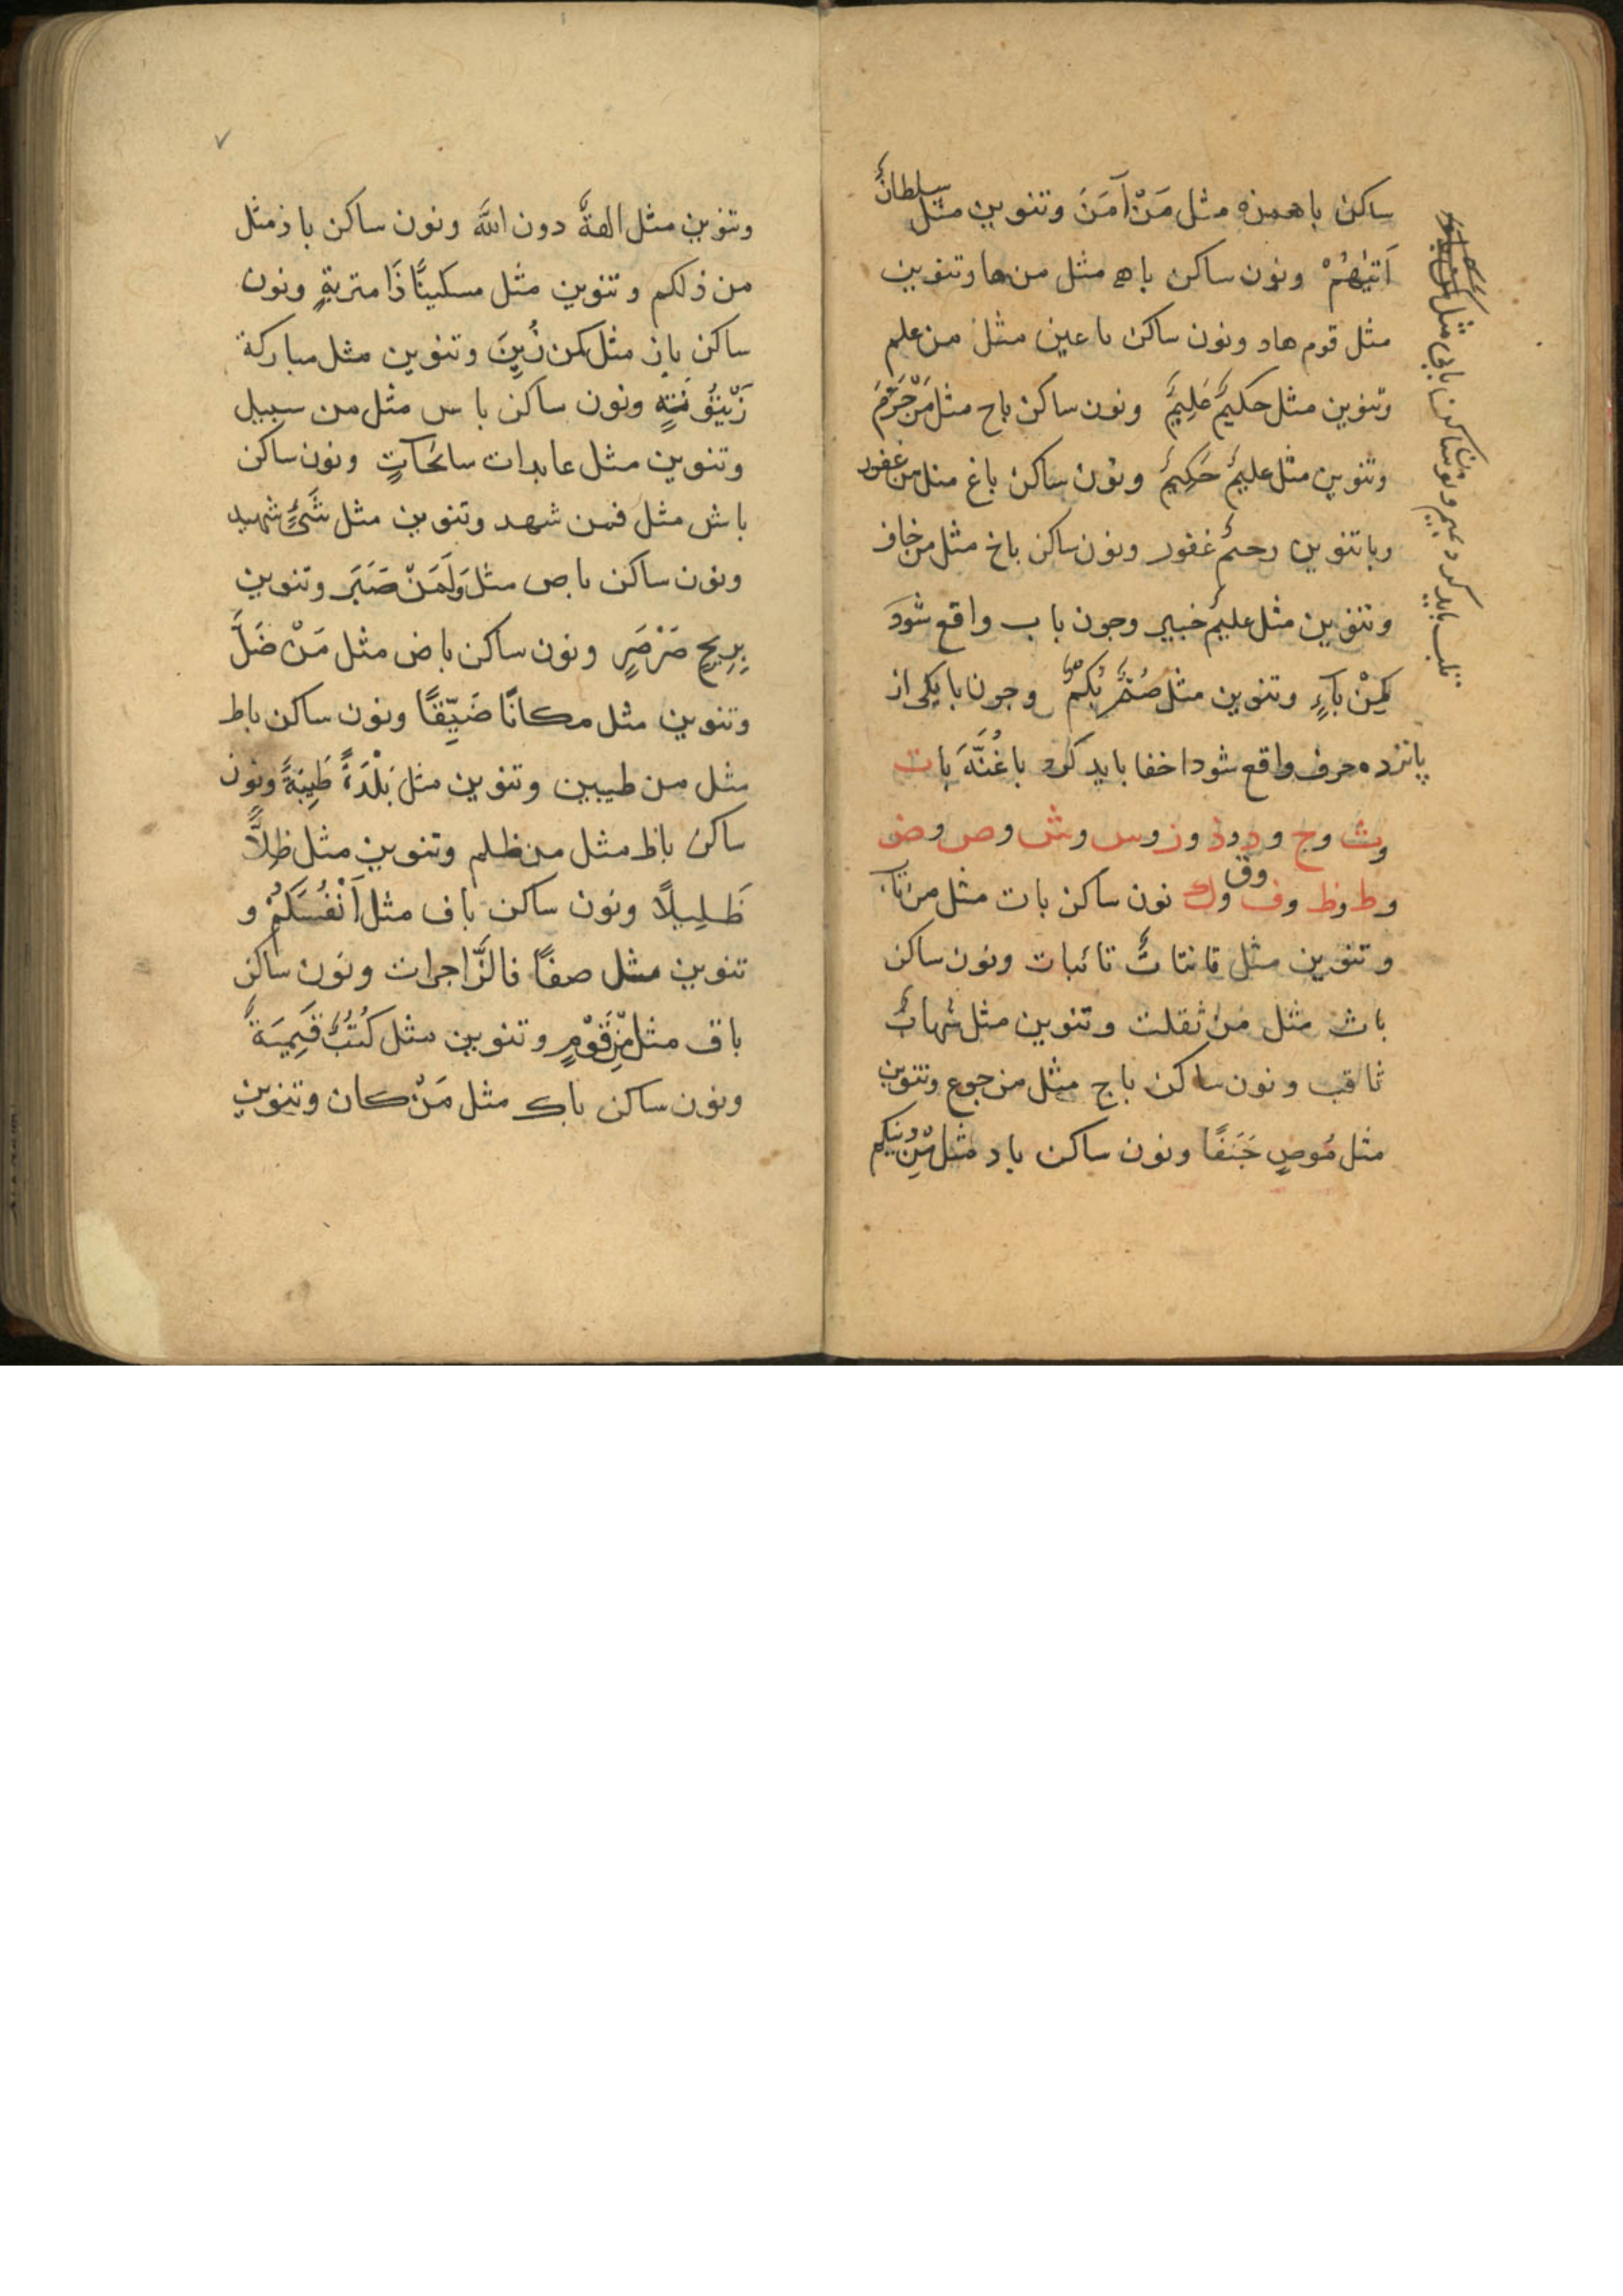 ساكن با همزه مثل مَنْ آمَنَ وتنوين مثل سلطانٌ
اَتيٰهُمْ ونون ساكن با ه مثل من ها وتنوين
مثل قوم هاد ونون ساكن با عين مثل من علم
وتنوين مثل حكيمٌ عَلِيمٌ ونون ساكن باح مثل مَنْ حَرَّمَ
وتنوين مثل عليمٌ حَكِيمٌ ونون ساكن باغ مثل من غفور
وبا تنوين رحيمٌ غفور ونون ساكن باخ مثل من خاف
وتنوين مثل عليمٌ خبير وجون با ب واقع شود
مثل صُمٌّ بُكْمٌ وجون با يكى از
پانزده حرف واقع شود اخفا بايد كرد با غُنَّهَ بات
وث وج ود وذ وز وس وش وص وض
وط وظ وف وق وك نون ساكن بات مثل من تاب
وتنوين مثل قانتاتٌ تائبات ونون ساكن
باث مثل من ثقلت وتنوين مثل شهابٌ
ثاقب ونون ساكن باج مثل من جوع وتنوين
مثل مُوصٍ جَنَفًا ونون ساكن باد مثل مِنْ دينكم
قلب بايد كرد بميم ونون ساكن بابى مثل
وتنوين مثل الهةٌ دون اللَّه ونون ساكن باذ مثل
من ذلكم وتنوين مثل مسكينًا ذَا متربةٍ ونون
ساكن باز مثل كمن زُيِنَ وتنوين مثل مباركة
زَيْتُونَتٍ ونون ساكن با س مثل من سبيل
وتنوين مثل عابدات سائحاتٍ ونون ساكن
باش مثل فمن شهد وتنوين مثل شَىْءٍ شهيد
ونون ساكن باص مثل وَلَمَنْ صَبَرَ وتنوين
بِرِيحٍ صَرْصَرٍ ونون ساكن باض مثل مَنْ ضَلَّ
وتنوين مثل مكانًا ضَيِّقًا ونون ساكن باط
مثل من طيبين وتنوين مثل بَلْدَةً طَيِبَةً ونون
ساكن باظ مثل من ظلم وتنوين مثل ظِلاًّ
ظَلِيلًا ونون ساكن باف مثل اَنْفُسَكُمْ و
تنوين مثل صفًا فالزَّاجرات ونون ساكن
باق مثل مِنْ قَوْمٍ وتنوين مثل كُتُبٌ قَيِمَةٌ
ونون ساكن باك مثل مَنْ كان وتنوين